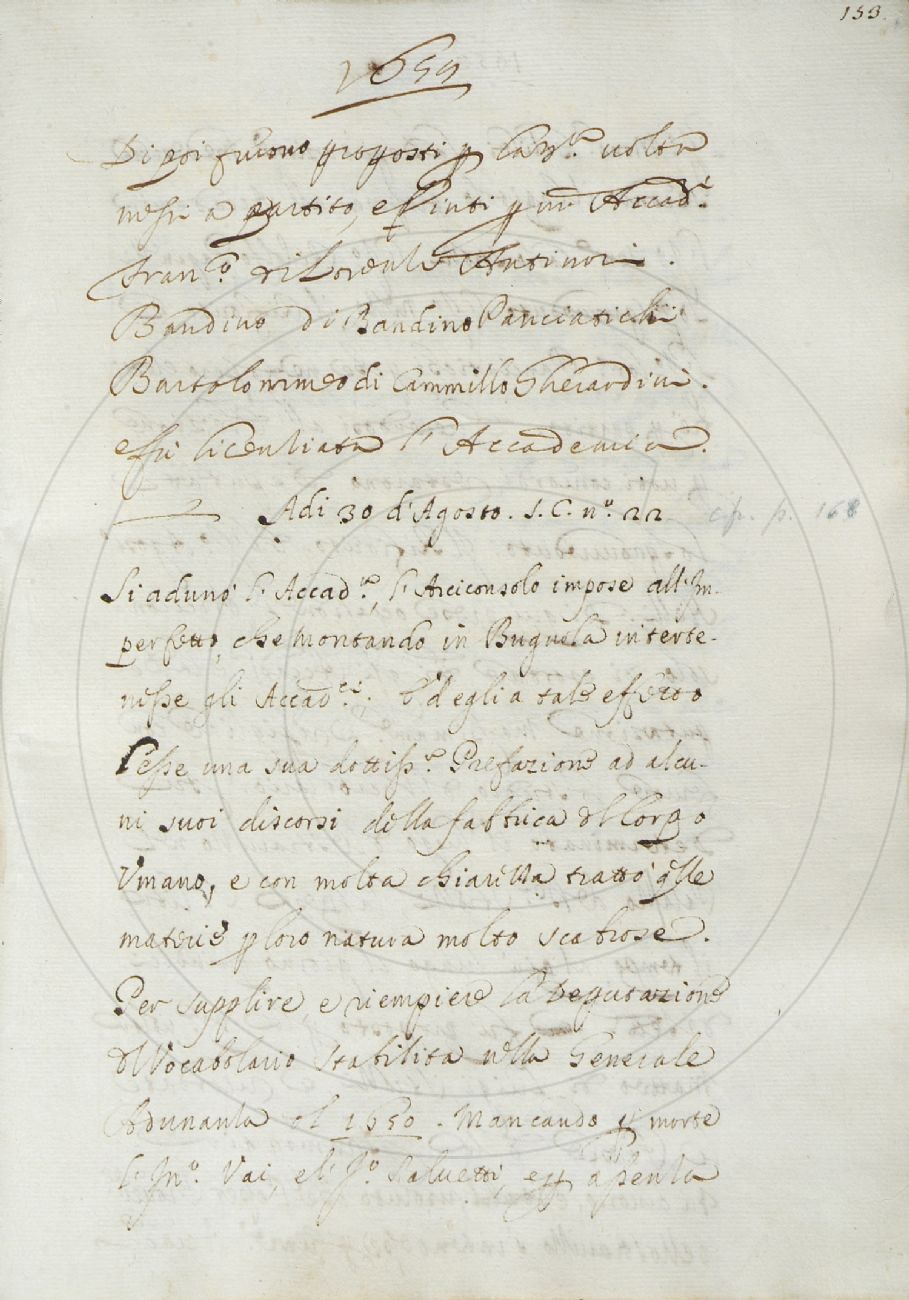 153.
1659
Di poi furono proposti p la 3.ª uolta
messi a partito, e uinti p uni Accad.ⁱ
Fran.º di Lorenzo Antinori.
Bandino di Bandino Panciatichi
Bartolommeo di Cammillo Gherardini.
e fù licenziata l'Accademia.
Adi 30 d'Agosto. S. C. nº. 22 cfr. p. 168
Si adunò l'Accad.ª, l'Arciconsolo impose all'Im-
perfetto, che montando in Bugnola interte-
nesse gli Accad.ci. Ed egli a tale effetto
lesse una sua dottiss.ª Prefazione ad alcu-
ni suoi discorsi della fabbrica del Corpo
Vmano, e con molta chiarezza trattò qlle
materie p loro natura molto scabrose.
Per supplire e riempiere la Deputazione
del Vocabolario stabilita nella Generale
Adunanza del 1650. Mancando p morte
l'In.º Vai, e l' Salvetti, e p assenza